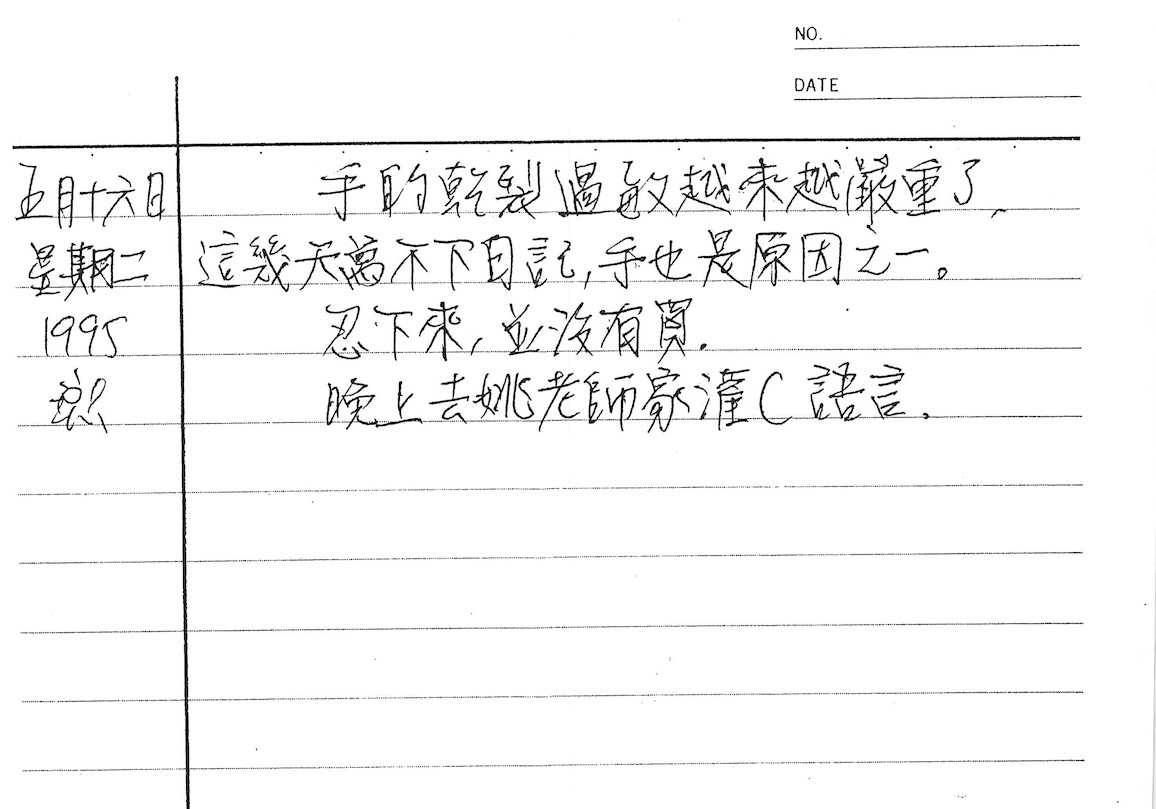 NO.
DATE
五月十六日 手的乾裂過敏越來越嚴重了,
星期二 這幾天寫不下日記,手也是原因之一。
1995 忍下來,並沒有買.
晚上去姚老師家灌C語言.